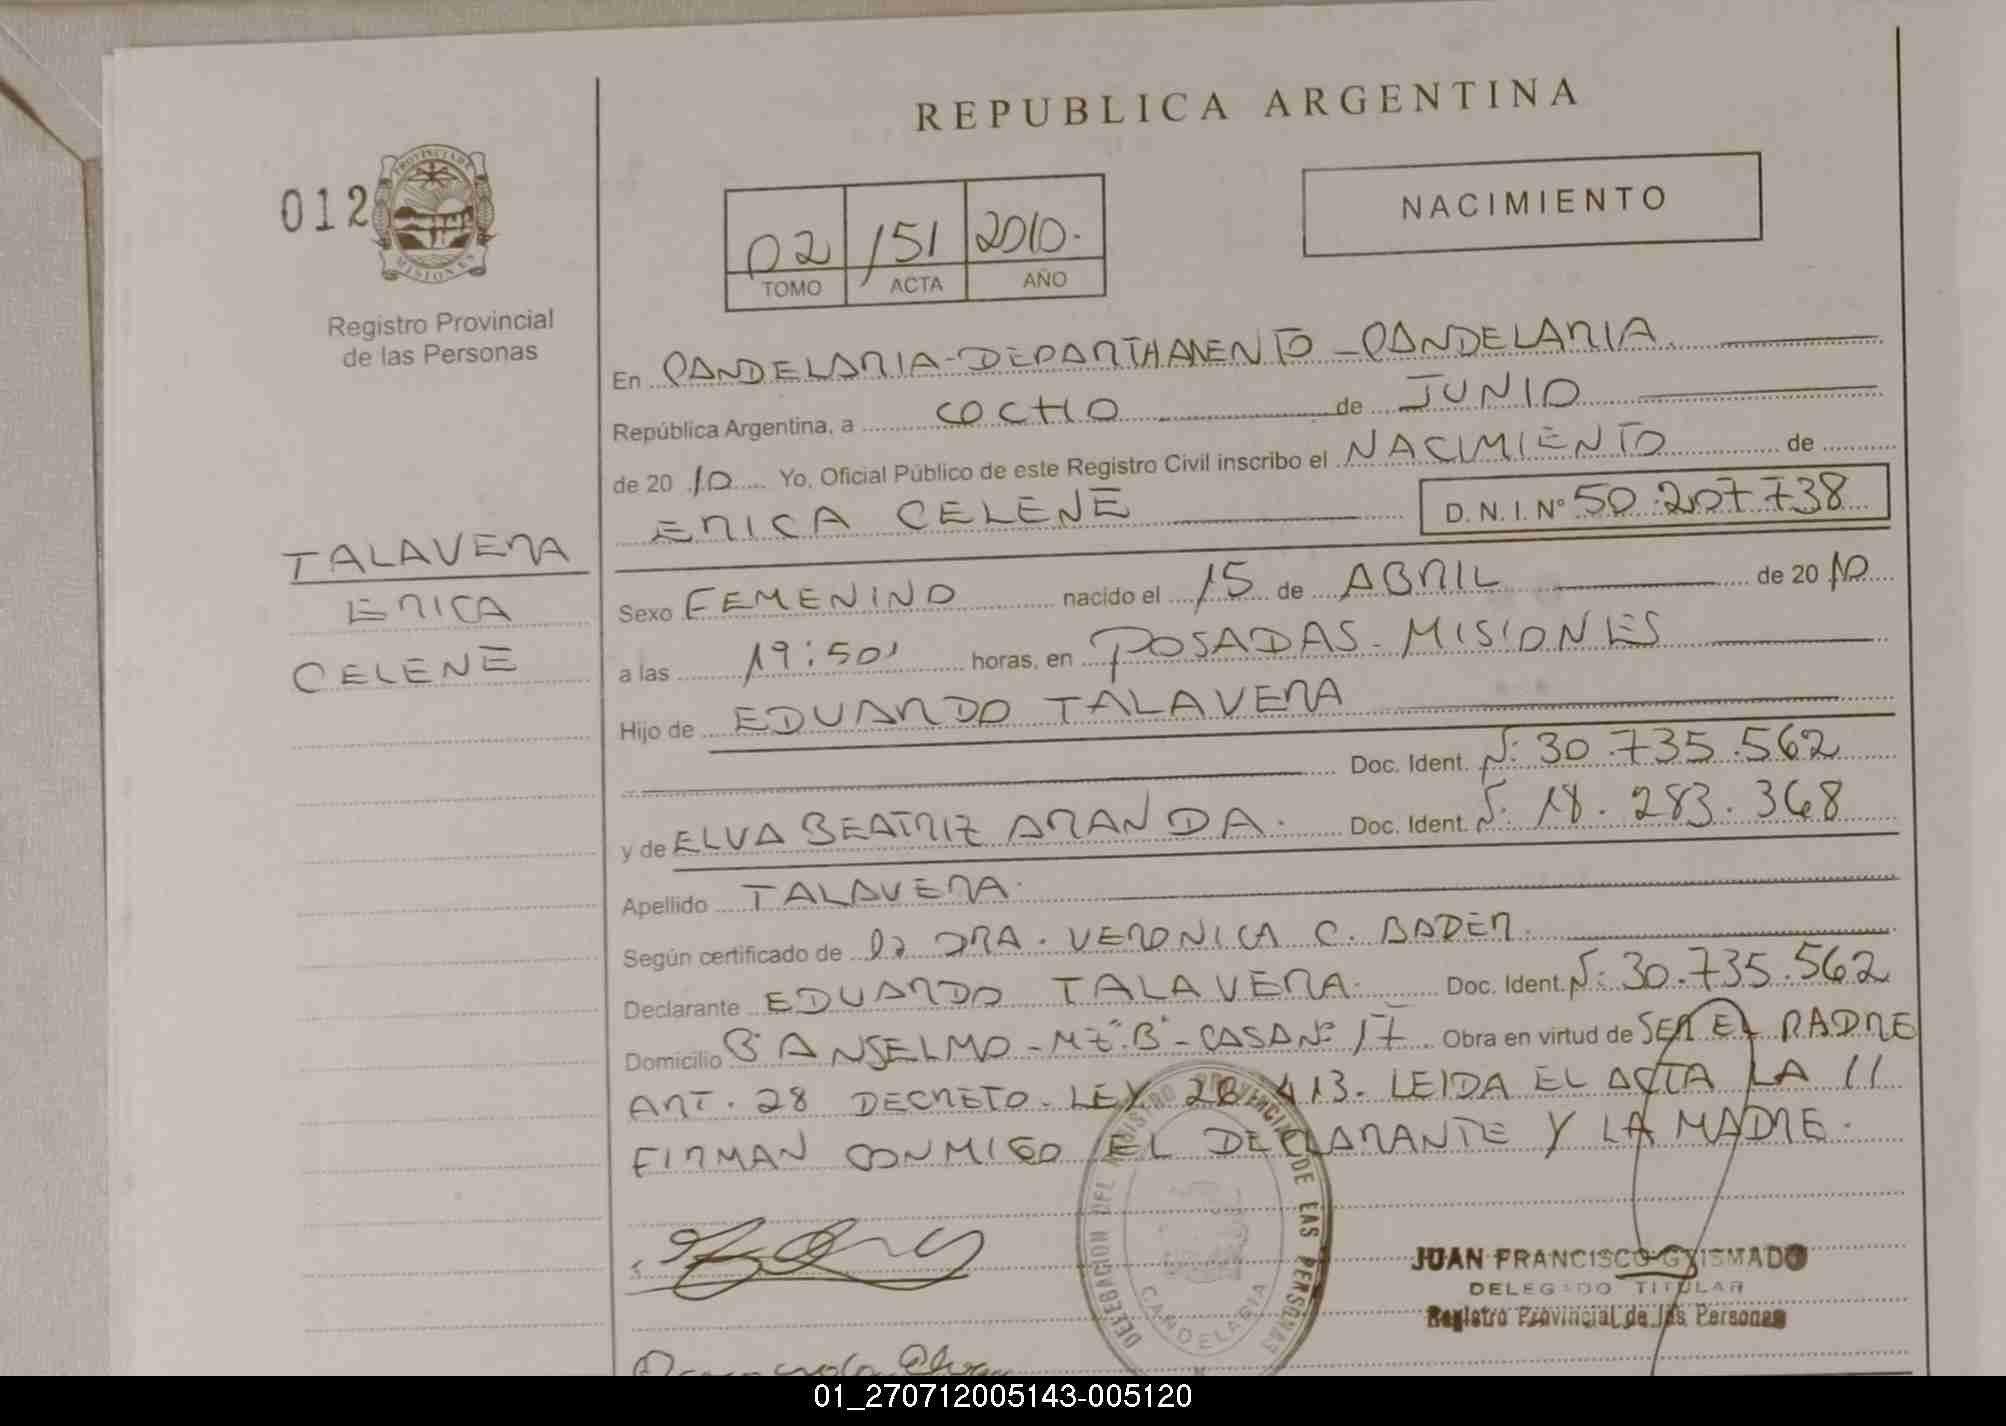 REPUBLICA ARGENTINA
012
PROVINCIA DE MISIONES
Registro Provincial
de las Personas
NACIMIENTO
02 151 2010.
TOMO ACTA AÑO
En CANDELARIA-DEPARTHAMENTO-CANDELARIA.
República Argentina, a OCHO de JUNIO
de 2010 Yo, Oficial Público de este Registro Civil inscribo el NACIMIENTO de
ERICA CELENE D.N.I. Nº 50.207.738
TALAVERA
ERICA
CELENE
Sexo FEMENINO nacido el 15 de ABRIL de 2010
a las 19:50' horas, en POSADAS-MISIONES
Hijo de EDUARDO TALAVERA
Doc. Ident. Nº: 30.735.562
y de ELVA BEATRIZ ARANDA. Doc. Ident. Nº: 18.283.368
Apellido TALAVERA.
Según certificado de la DRA. VERONICA C. BADER.
Declarante EDUARDO TALAVERA. Doc. Ident. Nº: 30.735.562
Domicilio Bº ANSELMO-MZ"B"-CASA Nº 17 Obra en virtud de SER EL PADRE
ART. 28 DECRETO-LEY 20413. LEIDA EL ACTA LA 11
FIRMAN CONMIGO EL DECLARANTE Y LA MADRE.
DELEGACION DEL REGISTRO PROVINCIAL DE LAS PERSONAS
CANDELARIA
JUAN FRANCISCO GRISMADO
DELEGADO TITULAR
Registro Provincial de las Personas
01_270712005143-005120